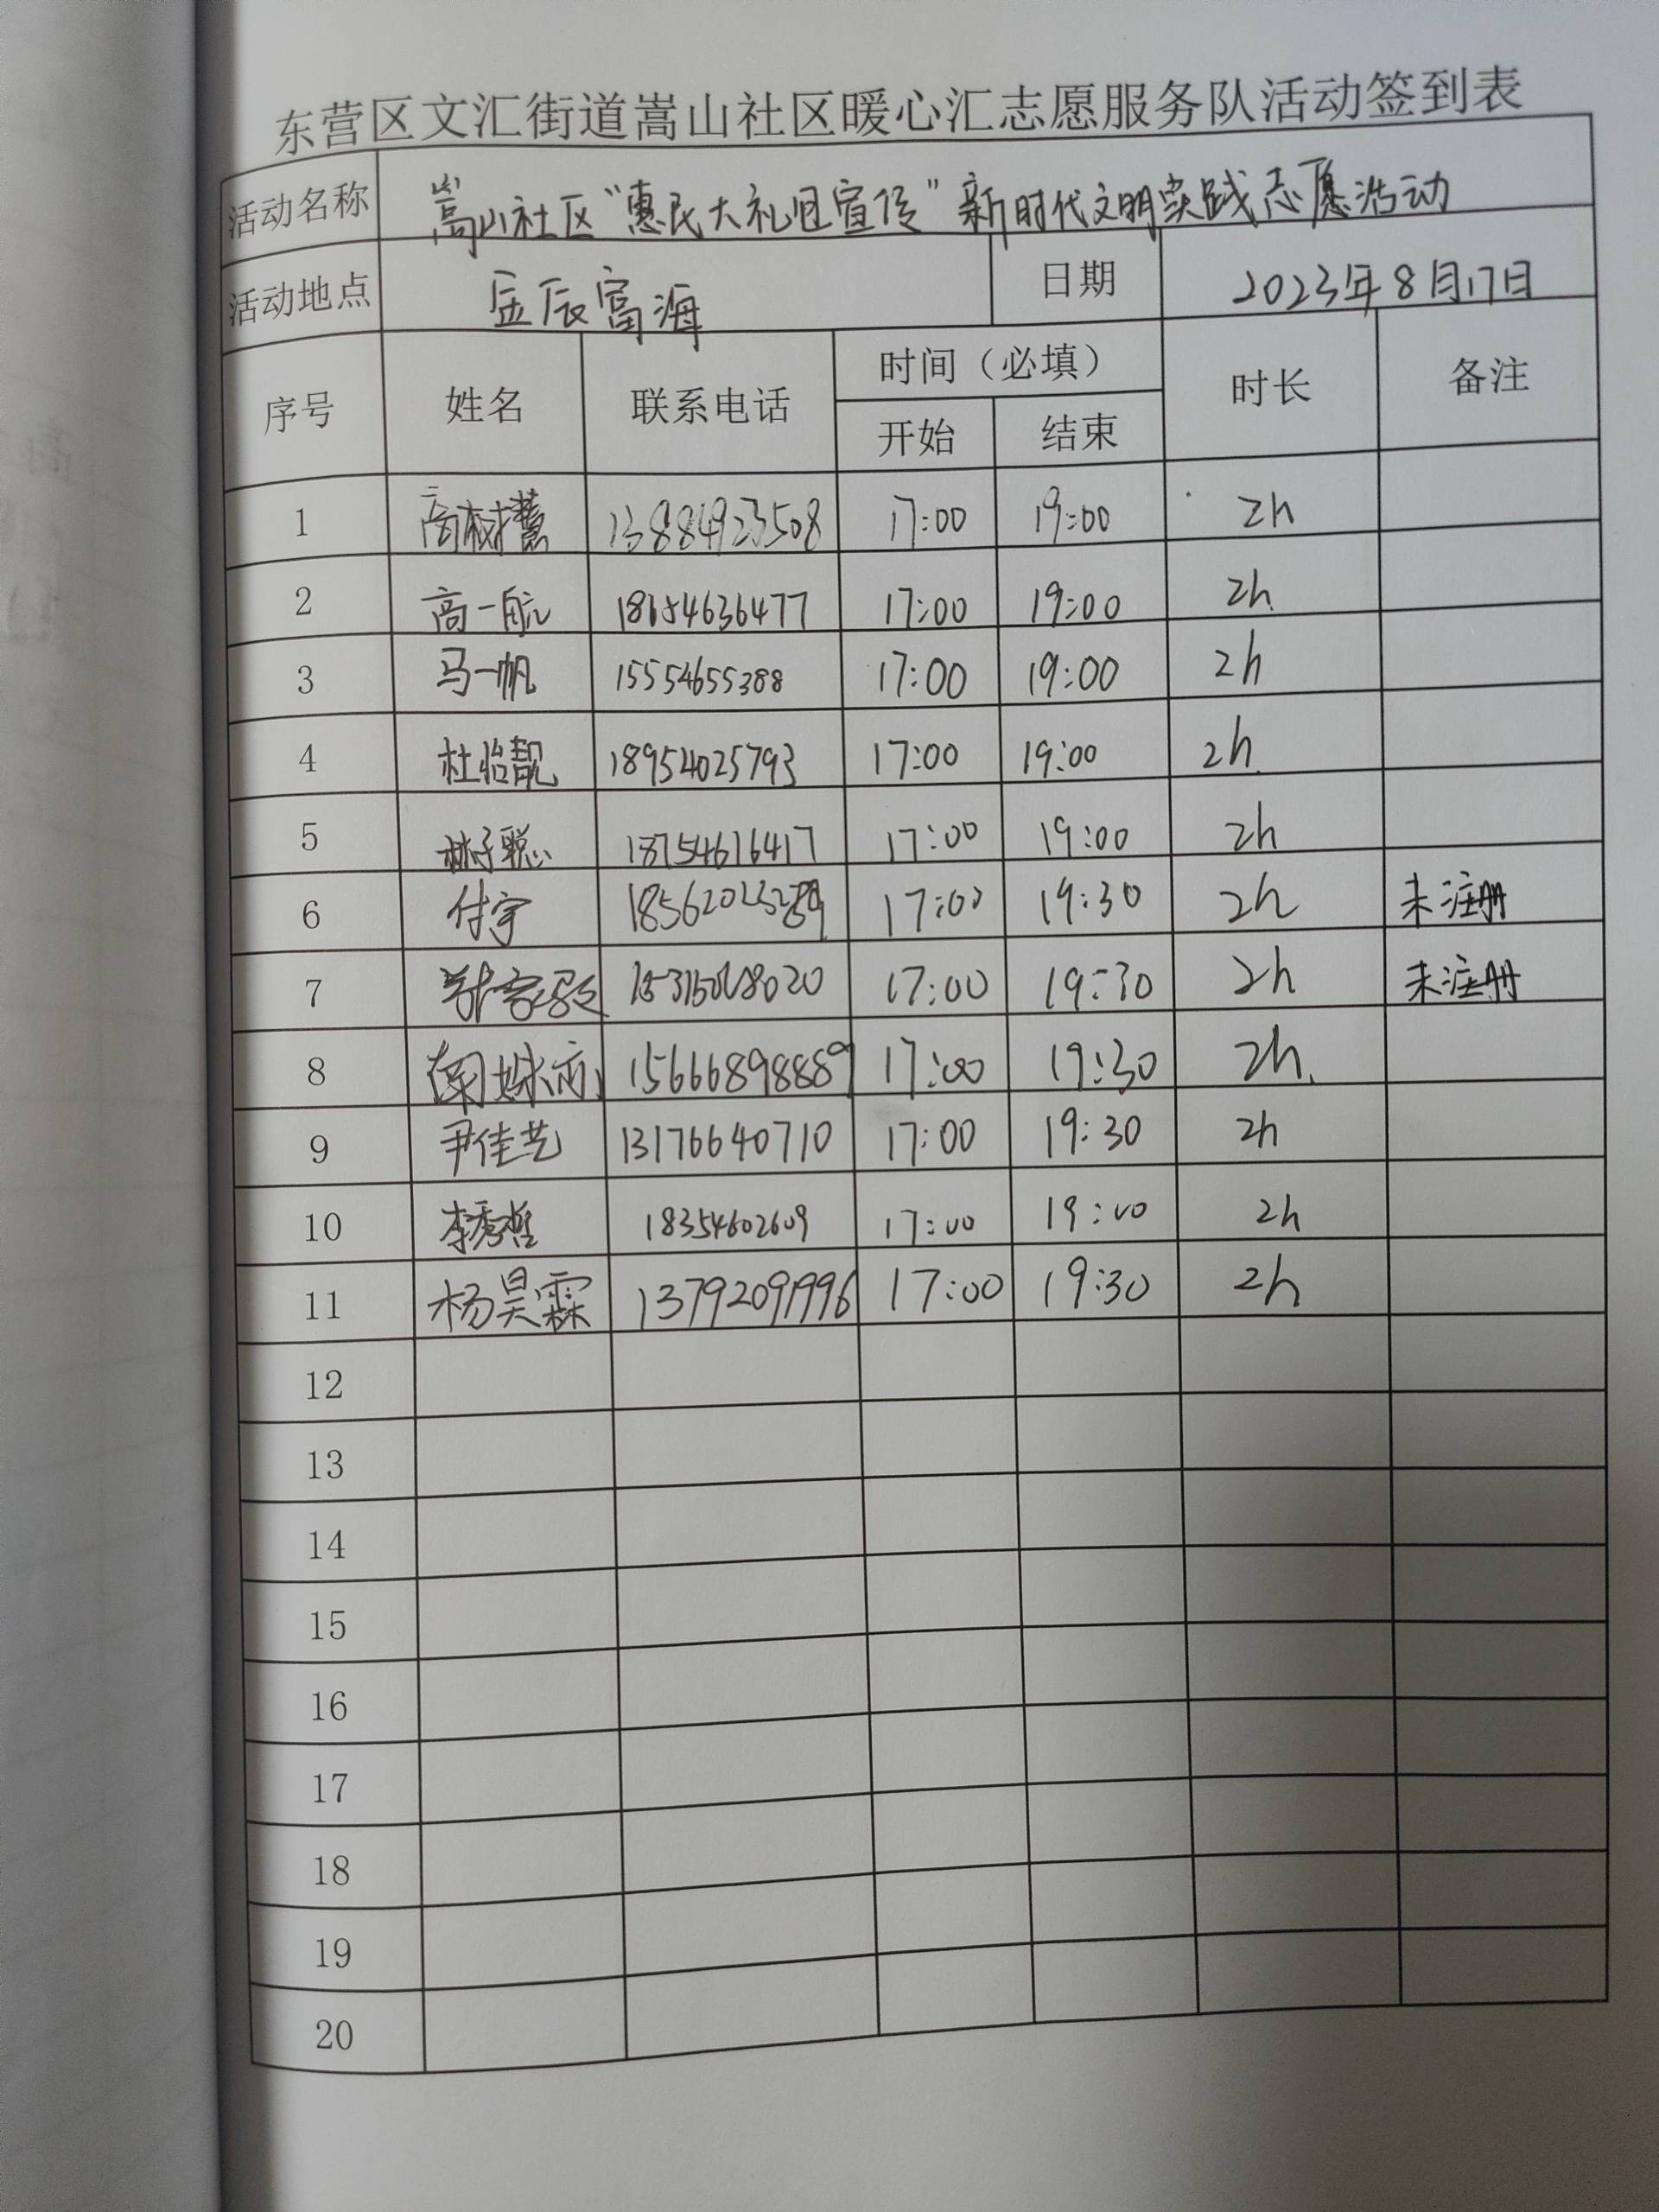 东营区文汇街道嵩山社区暖心汇志愿服务队活动签到表
活动名称 嵩山社区“惠民大礼包宣传”新时代文明实践志愿活动
活动地点 辰富海 日期 2023年8月17日
序号 姓名 联系电话 时间（必填） 时长 备注
开始 结束
1 高树慧 13884923508 17:00 19:00 2h
2 高一航 18654636477 17:00 19:00 2h
3 马一帆 15554655388 17:00 19:00 2h
4 杜怡靓 18954025793 17:00 19:00 2h
5 林子聪 18754616417 17:00 19:00 2h
6 付宇 17:00 19:30 2h 未注册
7 17:00 19:30 2h 未注册
8 15666898889 17:00 19:30 2h
9 尹佳艺 13176640710 17:00 19:30 2h
10 李秀哲 18354602609 17:00 19:00 2h
11 杨昊霖 13792091996 17:00 19:30 2h
12
13
14
15
16
17
18
19
20